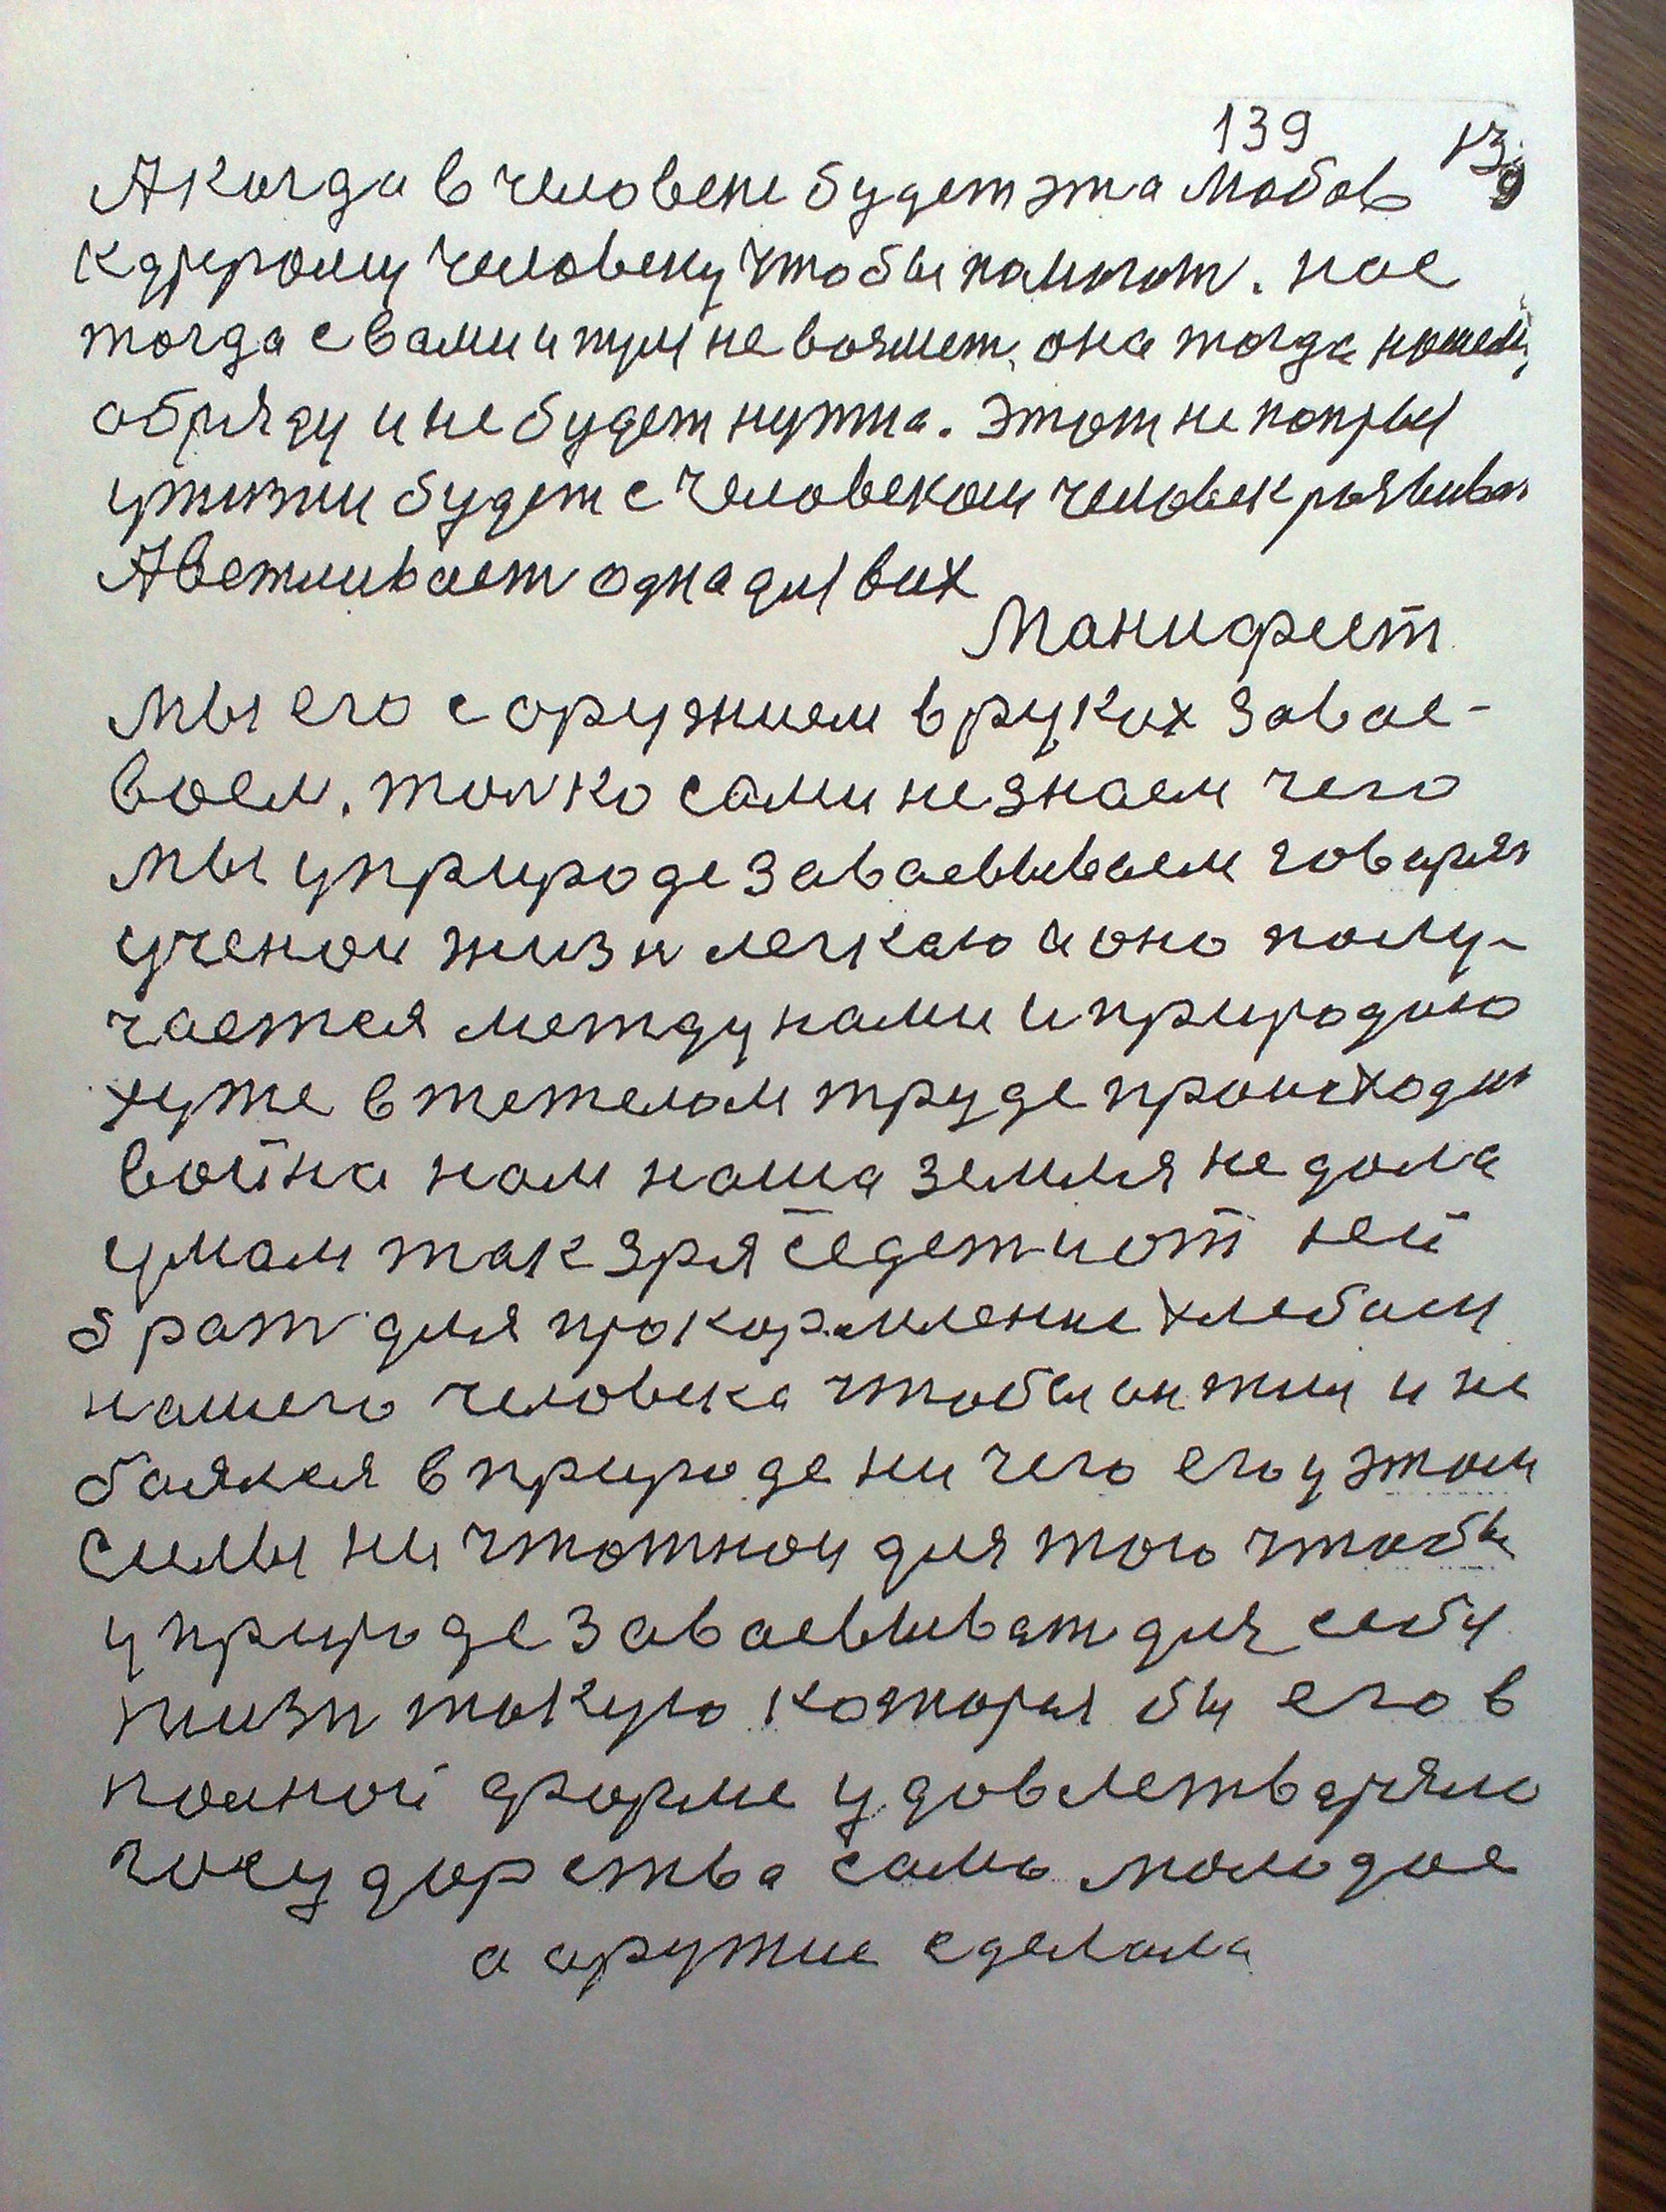 139 139
А когда в человеке будет эта любов
к другому человеку чтобы памогат. нас
тогда с вами и тут не возмет. она тогда нашему
обряду и не будет нужна. Этот не
у жизни будет с человеком человек развиват
А встиивает одна для вих
Манифест
Мы его с оружием в руках завае-
воем. толко сами не знаем чего
мы у природе заваевываем говарят
ученои жизн легкаю а оно полу-
чается между нами и природою
хуже в тежелом труде происходит
война нам наша земля не дала
умом так зря седет и от ней
брат для прокормление хлебом
нашего человека чтобы он жил и не
боялся в природе ни чего его у этом
силы ни чтотнои для того чтобы
у природе заваевыват для себя
жизн такую которая бы его в
полной форме удовлетваряло
государства само молодое
а аружие сделала